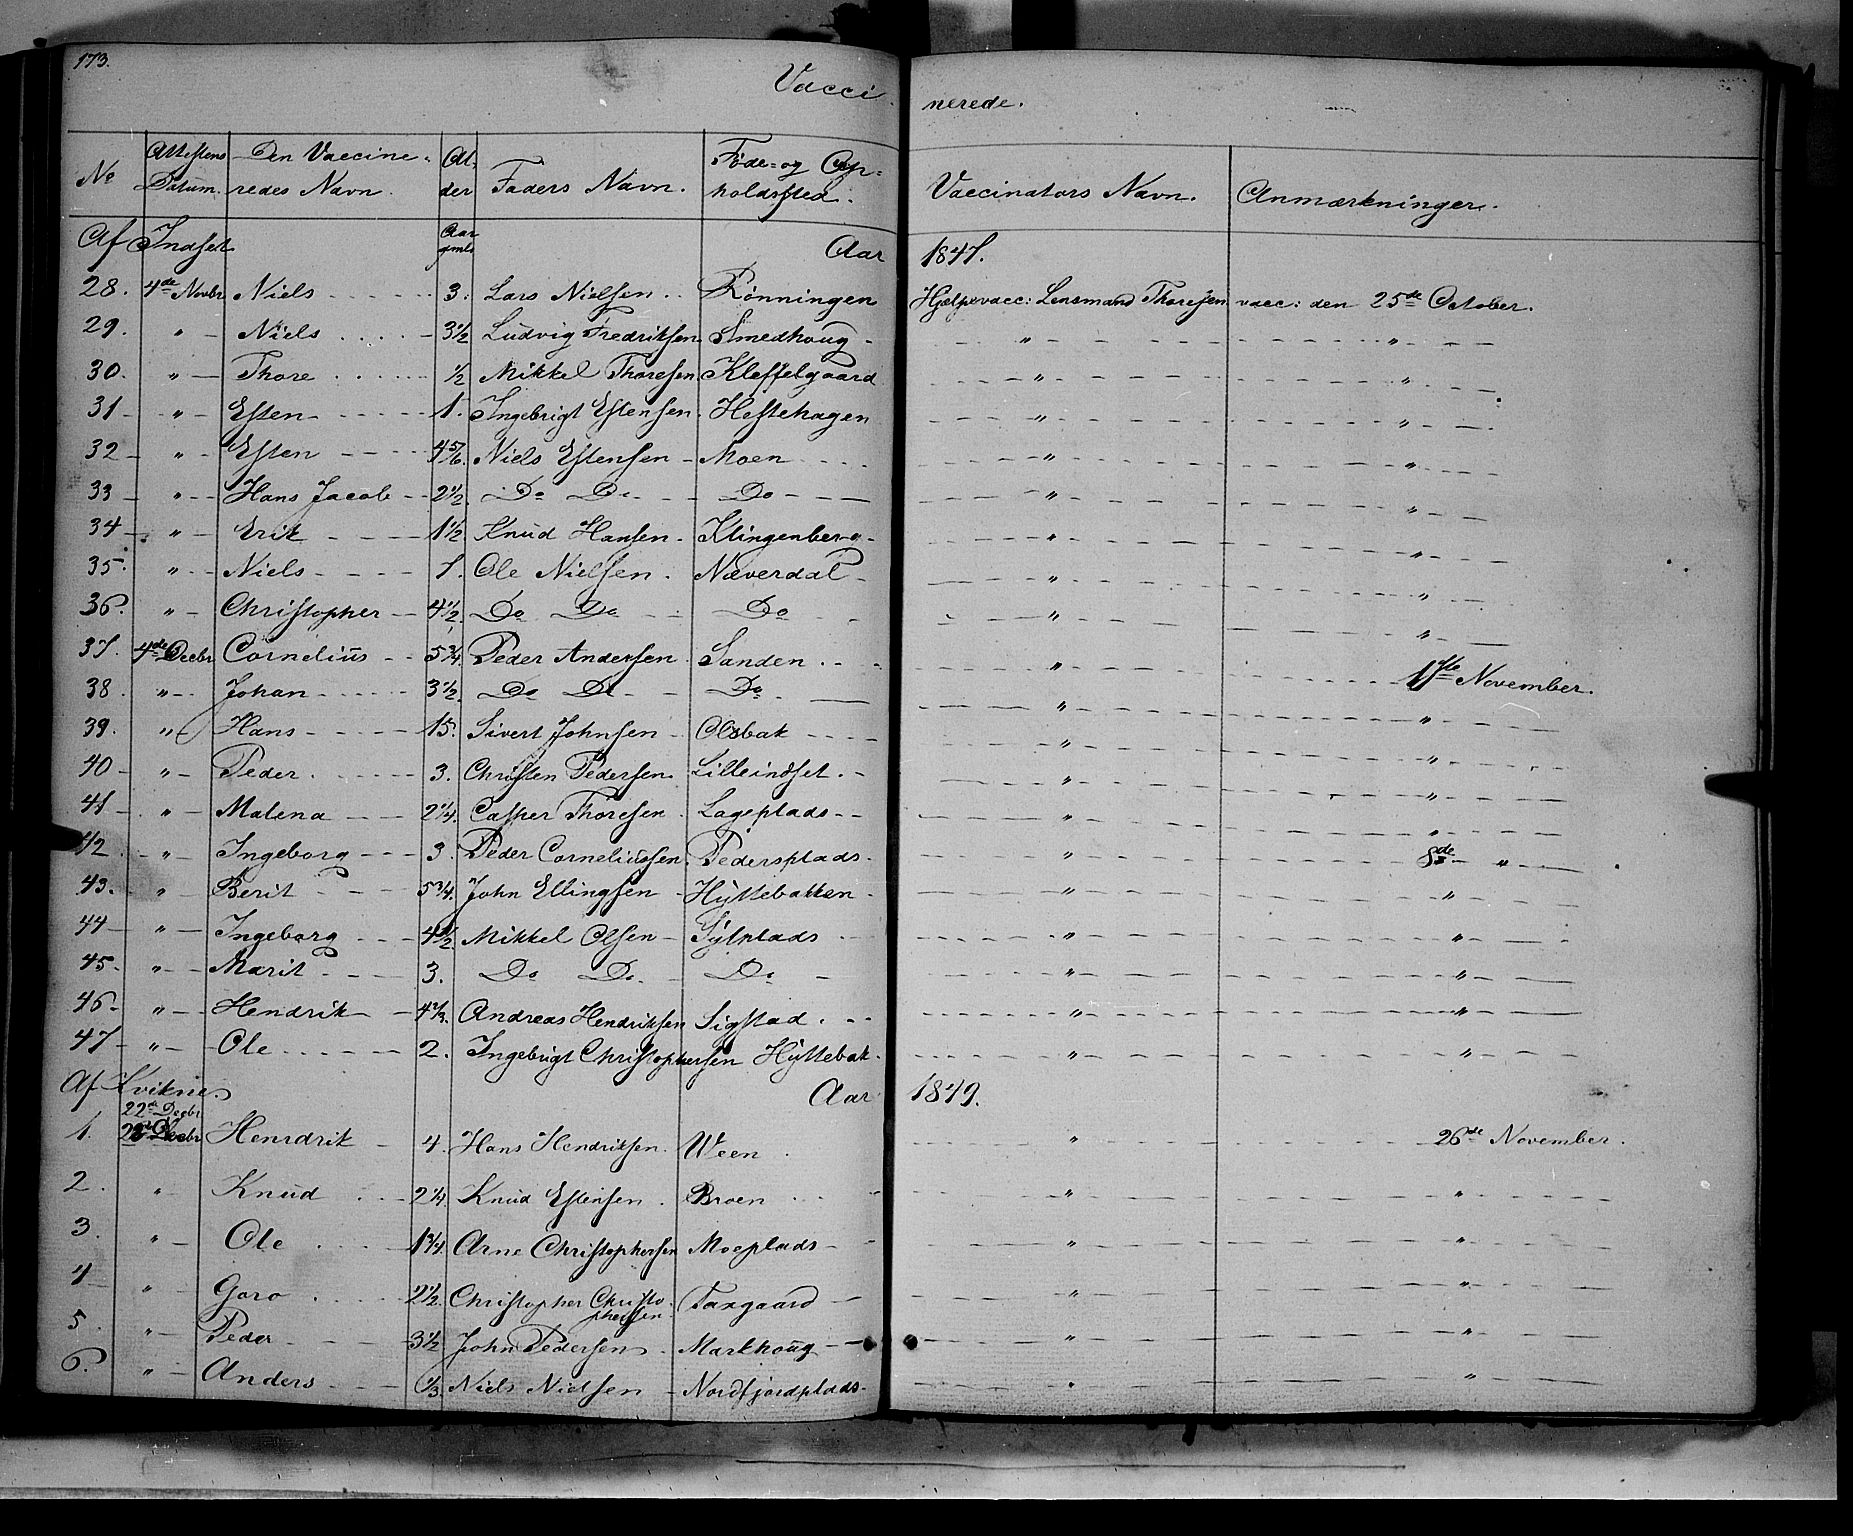 173.
Vacci nerede.
No Attestens Datum. Den Vaccine- redes Navn. Al- der Faders Navn. Føde- og Op- holdssted. Vaccinators Navn. Anmærkninger.
Af Indset Aar gml. Aar 1847.
28. 4de Novbr Niels 3. Lars Nielsen Rønningen Hjelpevacc: Lensmand Thoresen vacc: den 25de October.
29. " Niels 3 1/2 Ludvig Fredriksen Smedhoug " "
30. " Thore 1/2 Mikkel Thoresen Kleffelgaard " "
31 " Esten 1. Ingebrigt Estensen Hestehagen " "
32 " Esten 4 5/6. Niels Estensen Moen " "
33 " Hans Jacob 2 1/2. Do Do Do " "
34 " Erik 1 1/2 Knud Hansen Klingenberg " "
35. " Niels 1. Ole Nielsen Næverdal " "
36. " Christopher 4 1/2. Do Do Do " "
37. 4de Decbr Cornelius 5 3/4. Peder Andersen Sanden " 1ste November.
38. " Johan 3 1/2. Do Do Do " "
39. " Hans 15. Sivert Johnsen Olsbak " "
40 " Peder 3. Christen Pedersen Lilleindset " "
41 " Malena 2 1/4. Casper Thoresen Lageplads " "
42. " Ingeborg 3. Peder Corneliussen Pedersplads " 8de "
43. " Berit 5 3/4. John Ellingsen Hyttebakken " "
44 " Ingeborg 4 1/2. Mikkel Olsen Sylplads " "
45. " Marit 3. Do Do Do " "
46. " Hendrik 4 2/3. Andreas Hendriksen Sigstad " "
47 " Ole 2. Ingebrigt Christophersen Hyttebak " "
Af Kvikne Aar 1849.
22de Decbr
1. Hendrik 4. Hans Hendriksen Ween " 26de November.
2. " Knud 2 1/4. Knud Estensen Broen " "
3. " Ole 1 3/4. Arne Christophersen Moeplads " "
4 " Goro 2 1/2. Christopher Christo- phersen Fargaard " "
5. " Peder 3 1/2 John Pedersen Markhoug " "
6. " Anders 1/3. Niels Nielsen Nordfjordplads " "